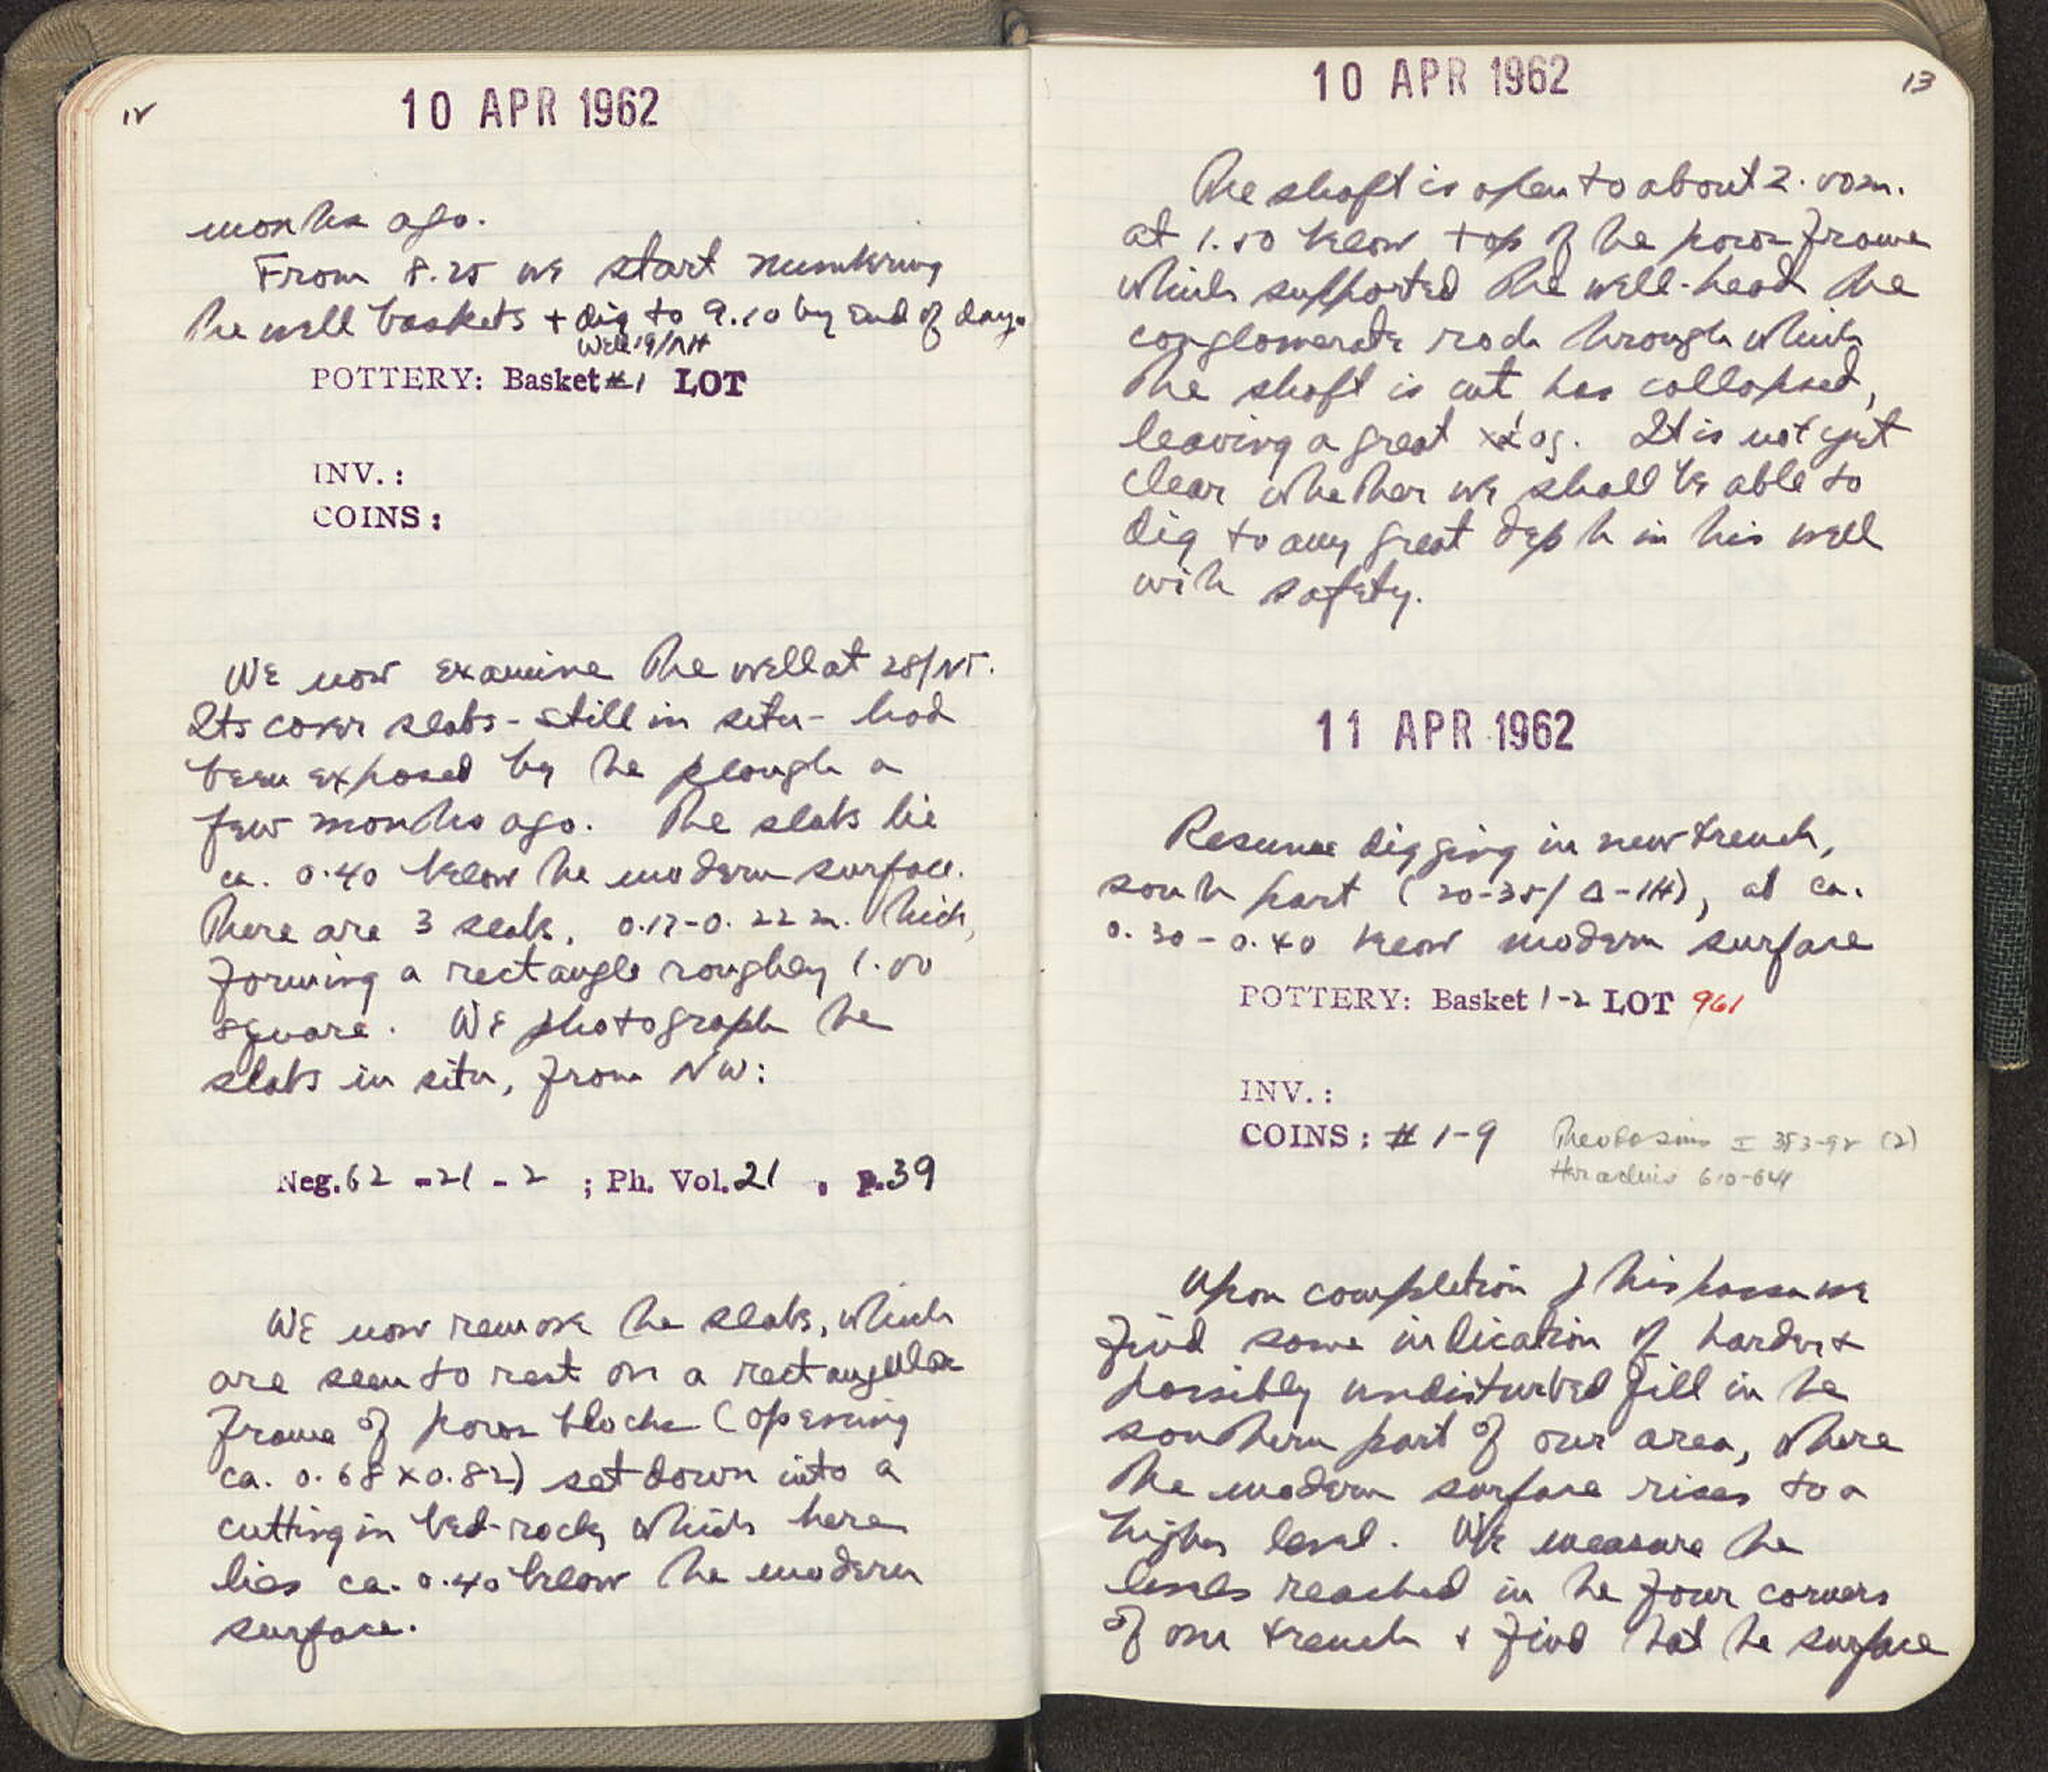 12
10 APR 1962
months ago.
From 8.25 we start numbering
the well baskets + dig to 9.10 by end of day.
Well 19/ΛΗ
POTTERY: Basket #1 LOT
INV.:
COINS:
We now examine the well at 28/
Its cover slabs - still in situ - had
been exposed by the plough a
few months ago. The slabs lie
ca. 0.40 below the modern surface.
There are 3 slabs, 0.17-0.22 m. thick,
forming a rectangle roughly 1.00
square. We photograph the
slabs in situ, from NW:
Neg. 62 - 21 - 2 ; Ph. Vol. 21 , p. 39
We now remove the slabs, which
are seen to rest on a rectangular
frame of poros blocks (opening
ca. 0.68 x 0.82) set down into a
cutting in bed-rock, which here
lies ca. 0.40 below the modern
surface.
10 APR 1962
13
The shaft is open to about 2.00 m.
at 1.50 below top of the poros frame
which supported the well-head the
conglomerate rock through which
the shaft is cut has collapsed,
leaving a great χάος. It is not yet
clear whether we shall be able to
dig to any great depth in this well
with safety.
11 APR 1962
Resume digging in new trench,
south part (20-35/Δ-ΙΗ), at ca.
0.30-0.40 below modern surface
POTTERY: Basket 1-2 LOT 961
INV.:
COINS: # 1-9 Theodosius I 383-92 (2)
Heraclius 610-641
Upon completion of this pass we
find some indication of harder +
possibly undisturbed fill in the
southern part of our area, where
the modern surface rises to a
higher level. We measure the
levels reached in the four corners
of our trench + find that the surface